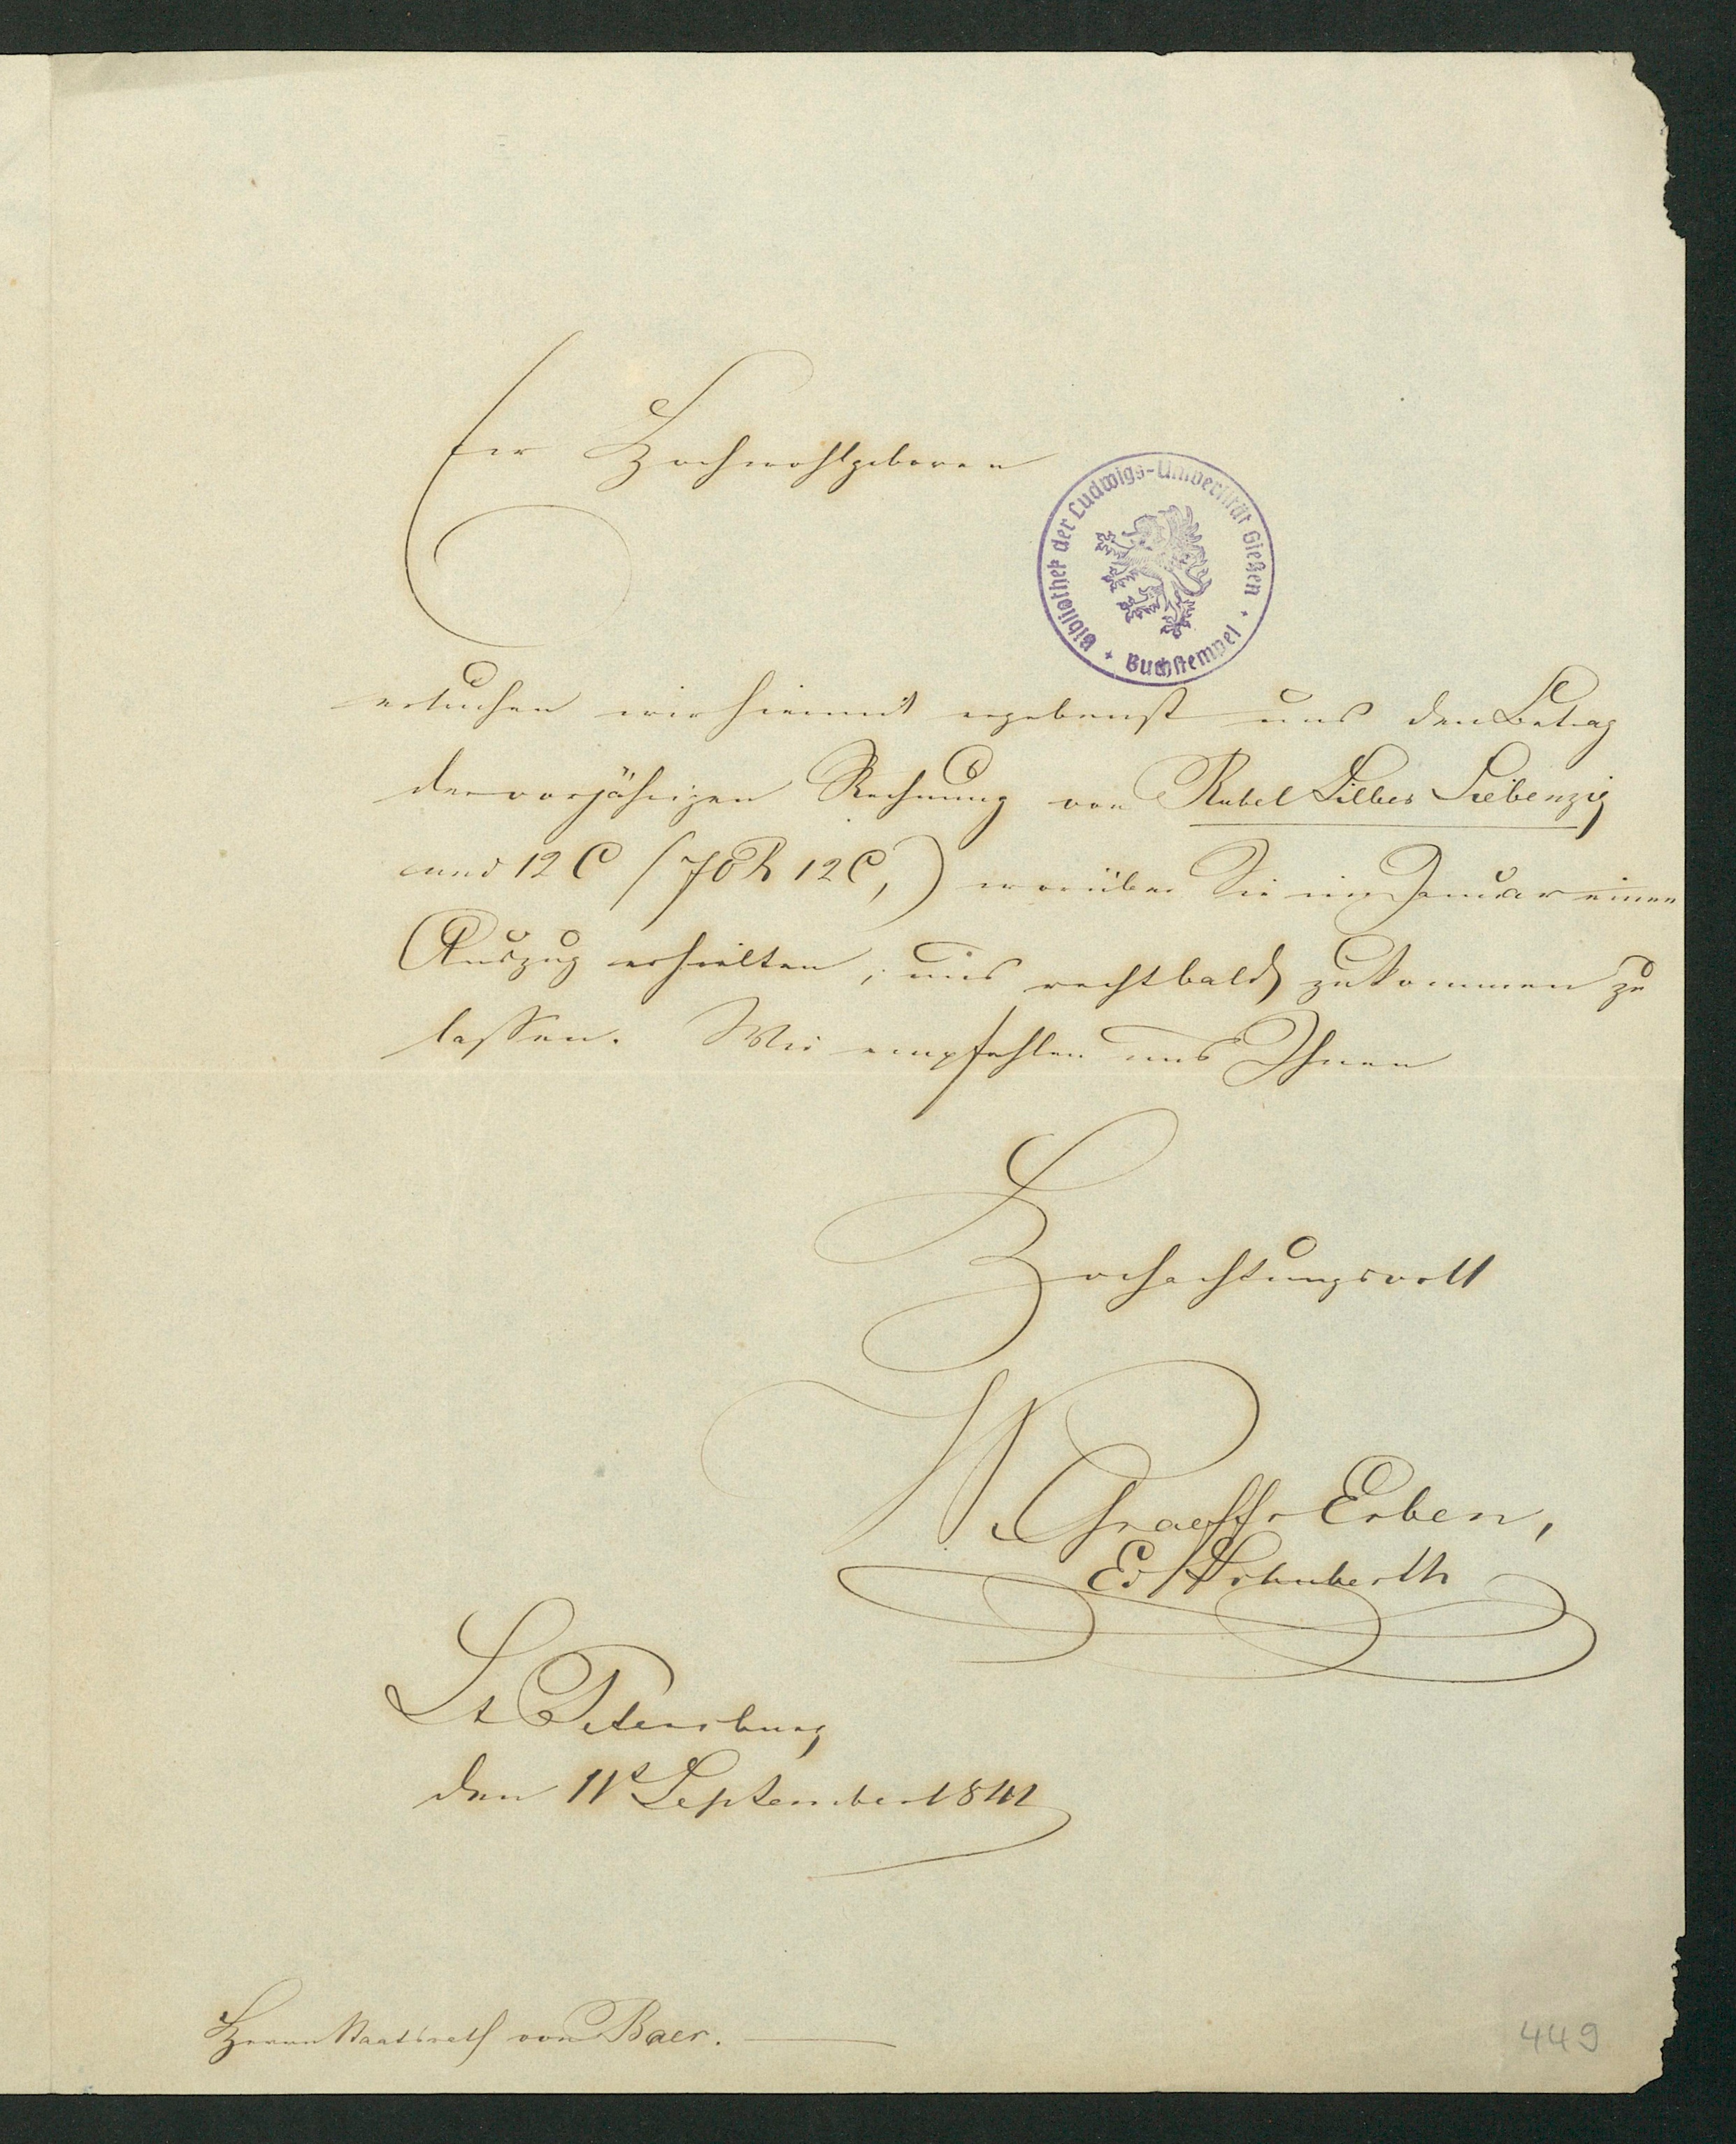 Ew Hochwohlgeboren
Bibliothek der Ludwigs-Universität Gießen + Buchstempel +
ersuchen wir hiermit ergebenst uns den Betrag
der vorjährigen Rechnung von Rubel Silber Siebenzig
und 12 C (70 R 12 C,) worüber Sie im Januar einen
Auszug erhielten, uns recht bald zukommen zu
lassen. Wir empfehlen uns Ihnen
Hochachtungsvoll
W. Graeffs Erben,
Ed Schuberth
St Petersburg
den 11t September 1841
Herrn Staatsrath von Baer.
449